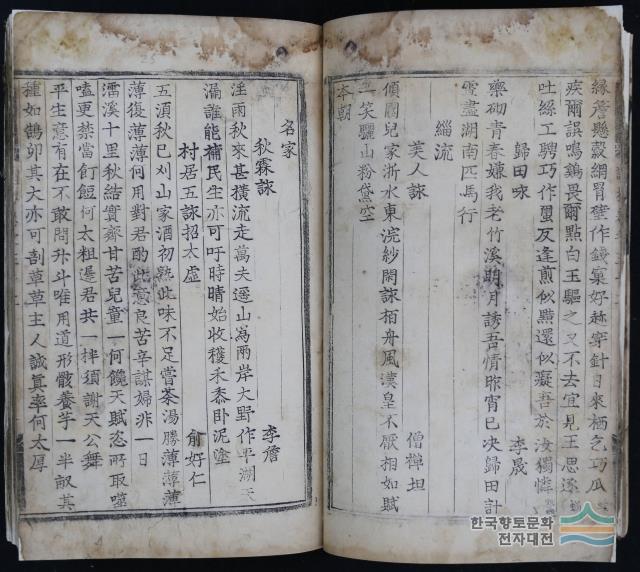 緣詹懸殼網作錢窠好趂穿針日來栖乞巧瓜
疾爾誤鳴鷄畏爾點白玉驅之又不去宜見王思逐
吐絲工騁巧作蠒反逢煎似黠還似癡吾於汝獨憐
歸田咏 李晟
藥砌青春嫌我老竹溪明月誘吾情昨宵已决歸田計
雪盡湖南匹馬行
緇流
美人詠 僧禪坦
傾國兒家浙水東浣紗閑詠栢舟風漢皇不厭相如賦
一笑驪山粉黛空
本朝
名家
秋霖詠 李詹
淫雨秋來甚橫流走萬夫遥山爲兩岸大野作平湖天
漏誰能補民生亦可吁時晴始收穫禾黍卧泥塗
村居五詠招太虛 俞好仁
五湏秋已刈山家酒初熟此味不足嘗茶湯勝薄薄薄
薄復薄薄何用對君酌此意良苦辛謀婦非一日
濡溪十里秋結實齊甘苦兒童一何饞天賦恣所取噬
嗑更禁當飣餖何太粗邊君共一拌須謝天公舞
平生意有在不敢問升斗唯用道形骸養芋一半畝其
種如鵠卵其大亦可剖草草主人誠真率何太厚
한국향토문화
전자대전